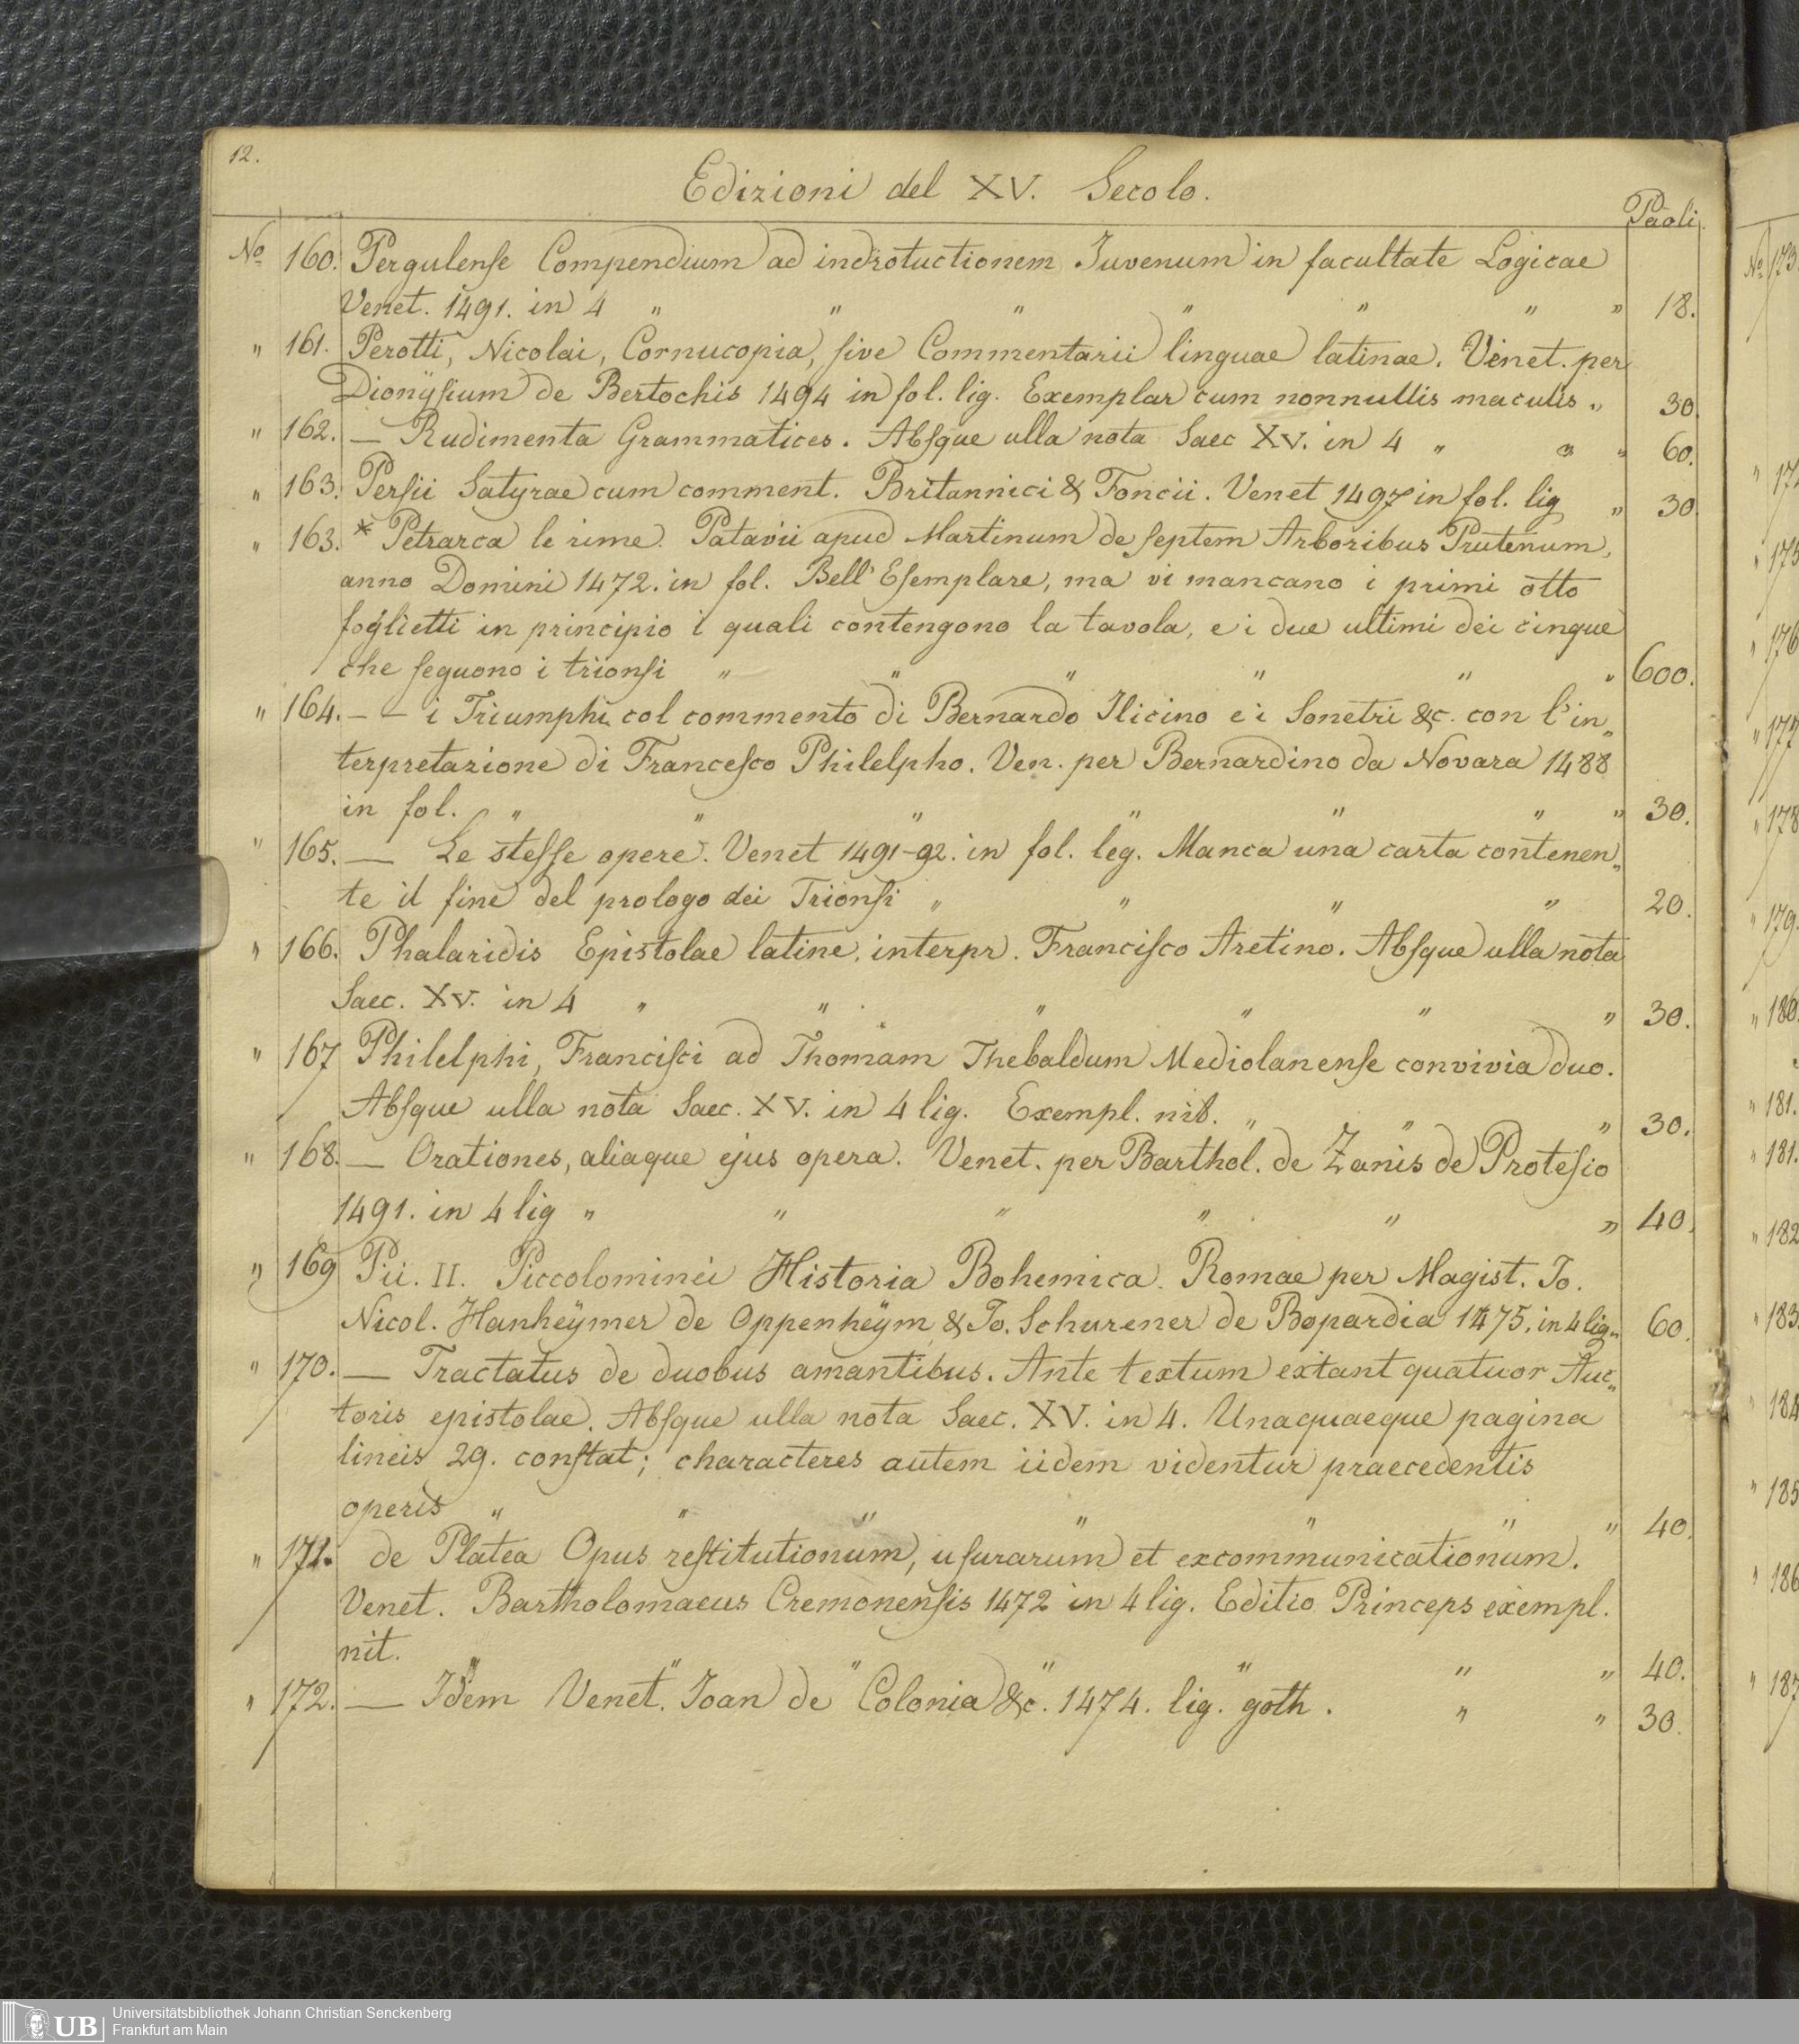 12.
Edizioni del XV. Secolo.
Paoli.
No 160. Pergulense Compendium ad indrotuctionem Iuvenum in facultate Logicae
Venet. 1491. in 4 " " " " " " " 18.
" 161. Perotti, Nicolai, Cornucopia, sive Commentarii linguae latinae. Venet. per
Dionÿsium de Bertochis 1494 in fol. lig. Exemplar cum nonnullis maculis " 30.
" 162. — Rudimenta Grammatices. Absque ulla nota Saec XV. in 4 " " " 60.
" 163. Persii Satyrae cum comment. Britannici & Foncii. Venet 1497 in fol. lig " 30.
" 163. * Petrarca le rime. Patavii apud Martinum de septem Arboribus Prutenum,
anno Domini 1472. in fol. Bell' Esemplare, ma vi mancano i primi otto
foglietti in principio i quali contengono la tavola, e i due ultimi dei cinque
che seguono i trionfi " " " " " " 600.
" 164. — — i Triumphi col commento di Bernardo Ilicino e i Sonetri &c. con l'in„
terpretazione di Francesco Philelpho. Ven. per Bernardino da Novara 1488
in fol. " " " " " " " 30.
" 165. — Le stesse opere. Venet 1491-92. in fol. leg. Manca una carta contenen„
te il fine del prologo dei Trionfi " " " " 20.
" 166. Phalaridis Epistolae latine, interpr. Francisco Aretino. Absque ulla nota
Saec. XV. in 4 " " " " " " 30.
" 167 Philelphi, Francisci ad Thomam Thebaldum Mediolanense convivia duo.
Absque ulla nota Saec. XV. in 4 lig. Exempl. nit. " " " 30.
" 168. — Orationes, aliaque ejus opera. Venet. per Barthol. de Zanis de Protesio
1491. in 4 lig " " " " " " 40.
" 169 Pii. II. Piccolominei Historia Bohemica. Romae per Magist. Io.
Nicol. Hanheÿmer de Oppenheÿm & Io. Schurener de Bopardia 1475. in 4 lig " 60.
" 170. — Tractatus de duobus amantibus. Ante textum extant quatuor Auc„
toris epistolae. Absque ulla nota Saec. XV. in 4. Unaquaeque pagina
lineis 29. constat; characteres autem iidem videntur praecedentis
operis " " " " " " " 40.
" 171. de Platea Opus restitutionum, usurarum et excommunicationum.
Venet. Bartholomaeus Cremonensis 1472 in 4 lig. Editio Princeps exempl.
nit. " " " " " " " 40.
" 172. — Idem Venet. Ioan de Colonia &c. 1474. lig. goth. " " 30.
No 173
" 174
" 175
" 176
" 177
" 178
" 179.
" 180.
" 181.
" 181.
" 182
" 183.
" 184
" 185
" 186
" 187
UB Universitätsbibliothek Johann Christian Senckenberg
Frankfurt am Main